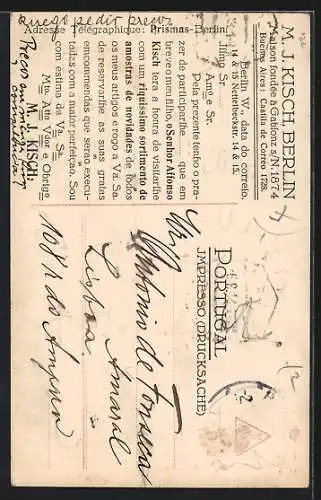 M. J. KISCH, BERLIN
Maison fondée à Gablonz s/N. 1874
Buenos Aires: Casilla de Correo 1728.
Berlin W., data do correio.
14 & 15 Nettelbeckstr. 14 & 15.
Illmo Sr.
Amgo e Sr.
Pela prezente tenho o pra-
zer de partecipar-lhe que em
breve o meu filho, o Senhor Alfonso
Kisch tera a honra de visitarlhe
com um riquissimo sortimento de
amostras de novidades de todos
os meus artigos e rogo a Va. Sa.
de reservarlhe as suas gratas
emcommendas que serão execu-
tadas com a maior perfeição. Sou
com estima de Va. Sa.
Mto. Atto. Vdor. e Obrigo.
M. J. KISCH:
Adresse Télégraphique: Prismas-Berlin.
PORTUGAL
IMPRESSO (DRUCKSACHE)
Antonio da Fonseca
Amaral
Lisboa